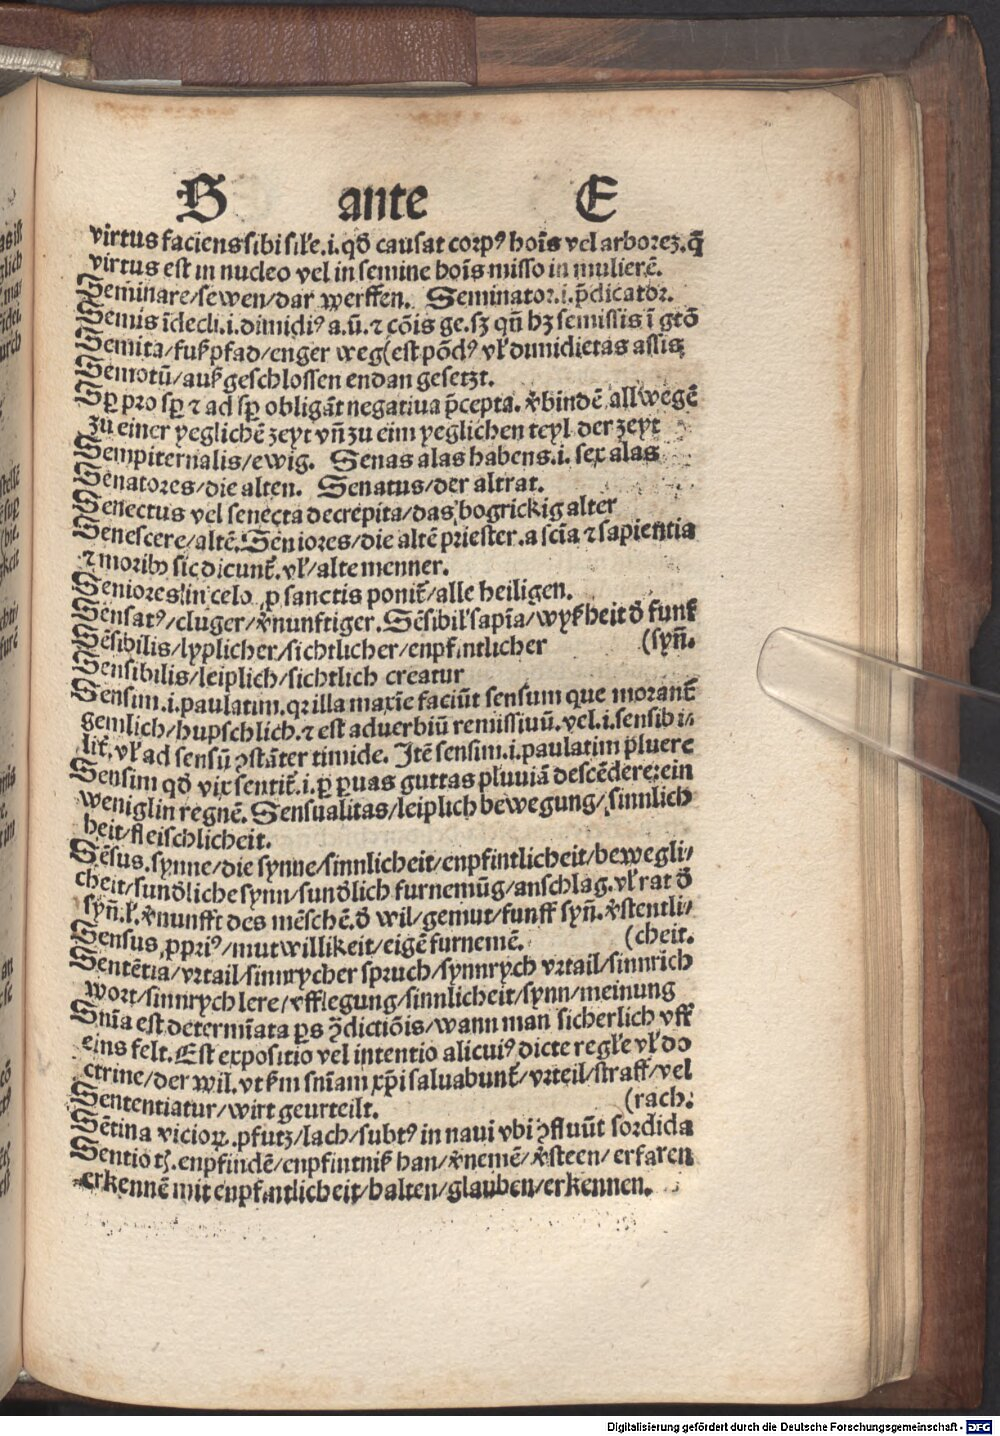 S ante E
virtus faciens sibi sil̄e.i.qđ causat corpꝰ hoīs vel arboreʒ.q̄
virtus est in nucleo vel in semine hoīs misso in mulierē.
Semīnare/sewen/dar werffen. Seminator.i.p̄dicator.
Semis īdecli.i.dimidiꝰ a.ū.⁊ cōis ge.sʒ qn̄ hʒ semissis ī gtō
Semita/fußpfad/enger weg(est pōdꝰ vl̛ dimidietas assis
Semotū/auß geschlossen endan gesetzt.
Sꝑ pro sꝑ ⁊ ad sꝑ obligāt negatiua p̄cepta. v̛bindē allwegē
zu einer yeglichē zeyt vn̄ zu eim yeglichen teyl der zeyt
Sempiternalis/ewig. Senas alas habens.i. sex alas
Senatores/die alten. Senatus/der altrat.
Senectus vel senecta decrepita/das bogrickig alter
Senescere/altē.Seniores/die altē priester.a scīa ⁊ sapientia
⁊ moribꝰ sic dicunt̛. vl̛/alte menner.
Seniores in celo ꝓ sanctis ponit̛/alle heiligen.
Sensatꝰ/cluger/v̛nunftiger.Sēsibil̛ sapīa/wyßheit đ funf
Sēsibilis/lyplicher/sichtlicher/enpfintlicher (syn̄.
Sensibilis/leiplich/sichtlich creatur
Sensim.i.paulatim.qꝛ illa maxīe faciūt sensum que morant̛
gemlich/hupschlich.⁊ est aduerbiū remissiuū.vel.i.sensibi⸗
lit̛.vl̛ ad sensū ꝯstāter timide. Itē sensim.i.paulatim pluere
Sensim qđ vix sentit̛.i.ꝑ ꝑuas guttas pluuiā descēdere:ein
weniglin regnē. Sensualitas/leiplich bewegung/sinnlich
heit/fleischlicheit.
Sēsus.synne/die synne/sinnlicheit/enpfintlicheit/bewegli⸗
cheit/sunđliche synn/sunđlich furnemūg/anschlag.vl̛ rat đ
syn̄.l̛.v̛nunfft des mēschē.đ wil/gemut/funff syn̄.v̛stentli⸗
Sensus ꝓpriꝰ/mutwillikeit/eigē furnemē. (cheit.
Sentētia/vrtail/sinnrycher spruch/synnrych vrtail/sinnrich
wort/sinnrych lere/vfflegung/sinnlicheit/synn/meinung
Snīa est determīata ꝑs ꝯ̄dictiōis/wann man sicherlich vff
eins felt.Est expositio vel intentio alicuiꝰ dicte regl̄e vl̛ do
ctrine/der wil.vt ẜm snīam xp̄i saluabunt̛/vrteil/straff/vel
Sententiatur/wirt geurteilt. (rach.
Sētina vicioꝝ.pfutz/lach/subtꝰ in naui vbi ꝯfluūt sordida
Sentio tꝭ.enpfindē/enpfintniß han/v̛nemē/v̛steen/erfaren
erkennē mit enpfintlicheit/halten/glauben/erkennen.
Digitalisierung gefördert durch die Deutsche Forschungsgemeinschaft - DFG